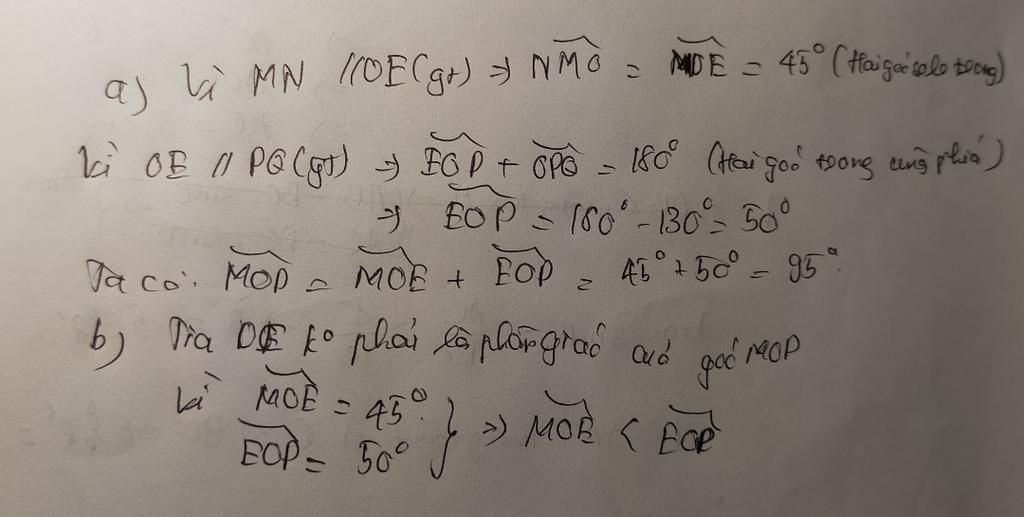 a) Vì MN // OE (gt) => NMO = MOE = 45° (Hai góc so le trong)
Vì OE // PQ (gt) => EOP + OPQ = 180° (Hai góc trong cùng phía)
=> EOP = 180° - 130° = 50°
Ta có: MOP = MOE + EOP = 45° + 50° = 95°.
b) Tia OE ko phải là phân giác của góc MOP
Vì MOE = 45°
EOP = 50° } => MOE < EOP